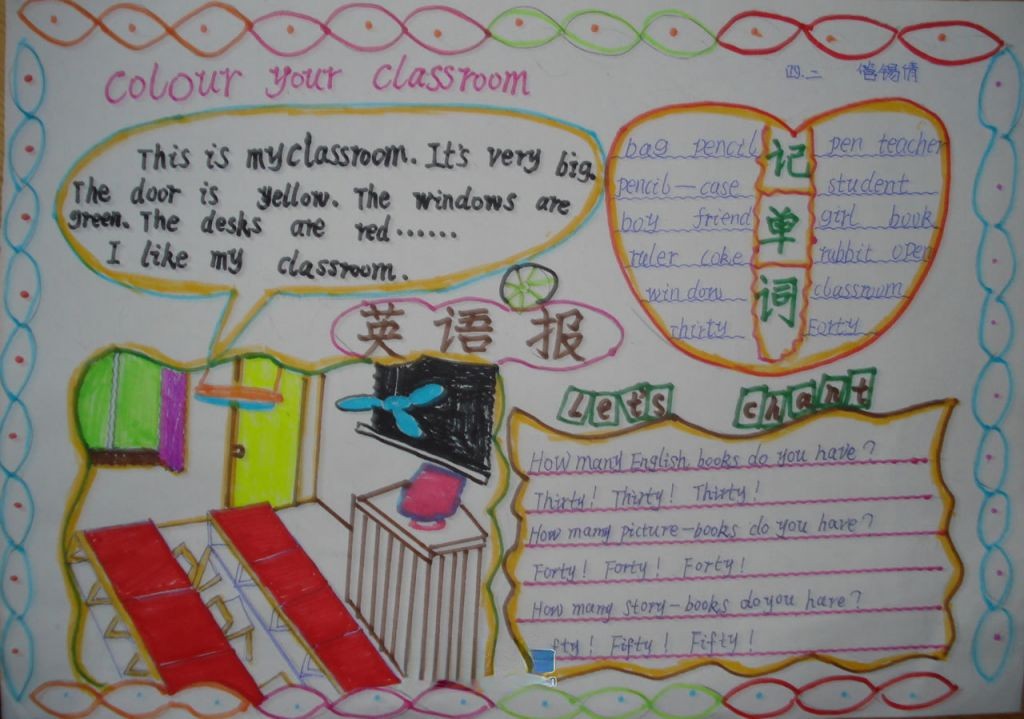 Colour your classroom
四.二
This is my classroom. It's very big.
The door is yellow. The windows are
green. The desks are red......
I like my classroom.
记单词
bag pencil
pencil-case
boy friend
ruler coke
window
thirty
pen teacher
student
girl book
rabbit open
classroom
Forty
英语报
Let's chant
How many English books do you have?
Thirty! Thirty! Thirty!
How many picture-books do you have?
Forty! Forty! Forty!
How many story-books do you have?
fty! Fifty! Fifty!